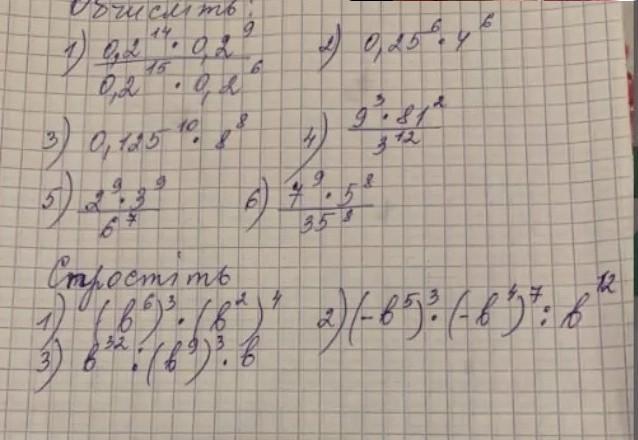 Обчисліть:
1) (0,2^14 · 0,2^9)/(0,2^15 · 0,2^6) 2) 0,25^6 · 4^6
3) 0,125^10 · 8^8 4) (9^3 · 81^2)/(3^12)
5) (2^9 · 3^9)/(6^7) 6) (7^9 · 5^8)/(35^8)
Спростіть
1) (b^6)^3 · (b^2)^4 2) (-b^5)^3 · (-b^4)^7 : b^12
3) b^32 : (b^9)^3 · b